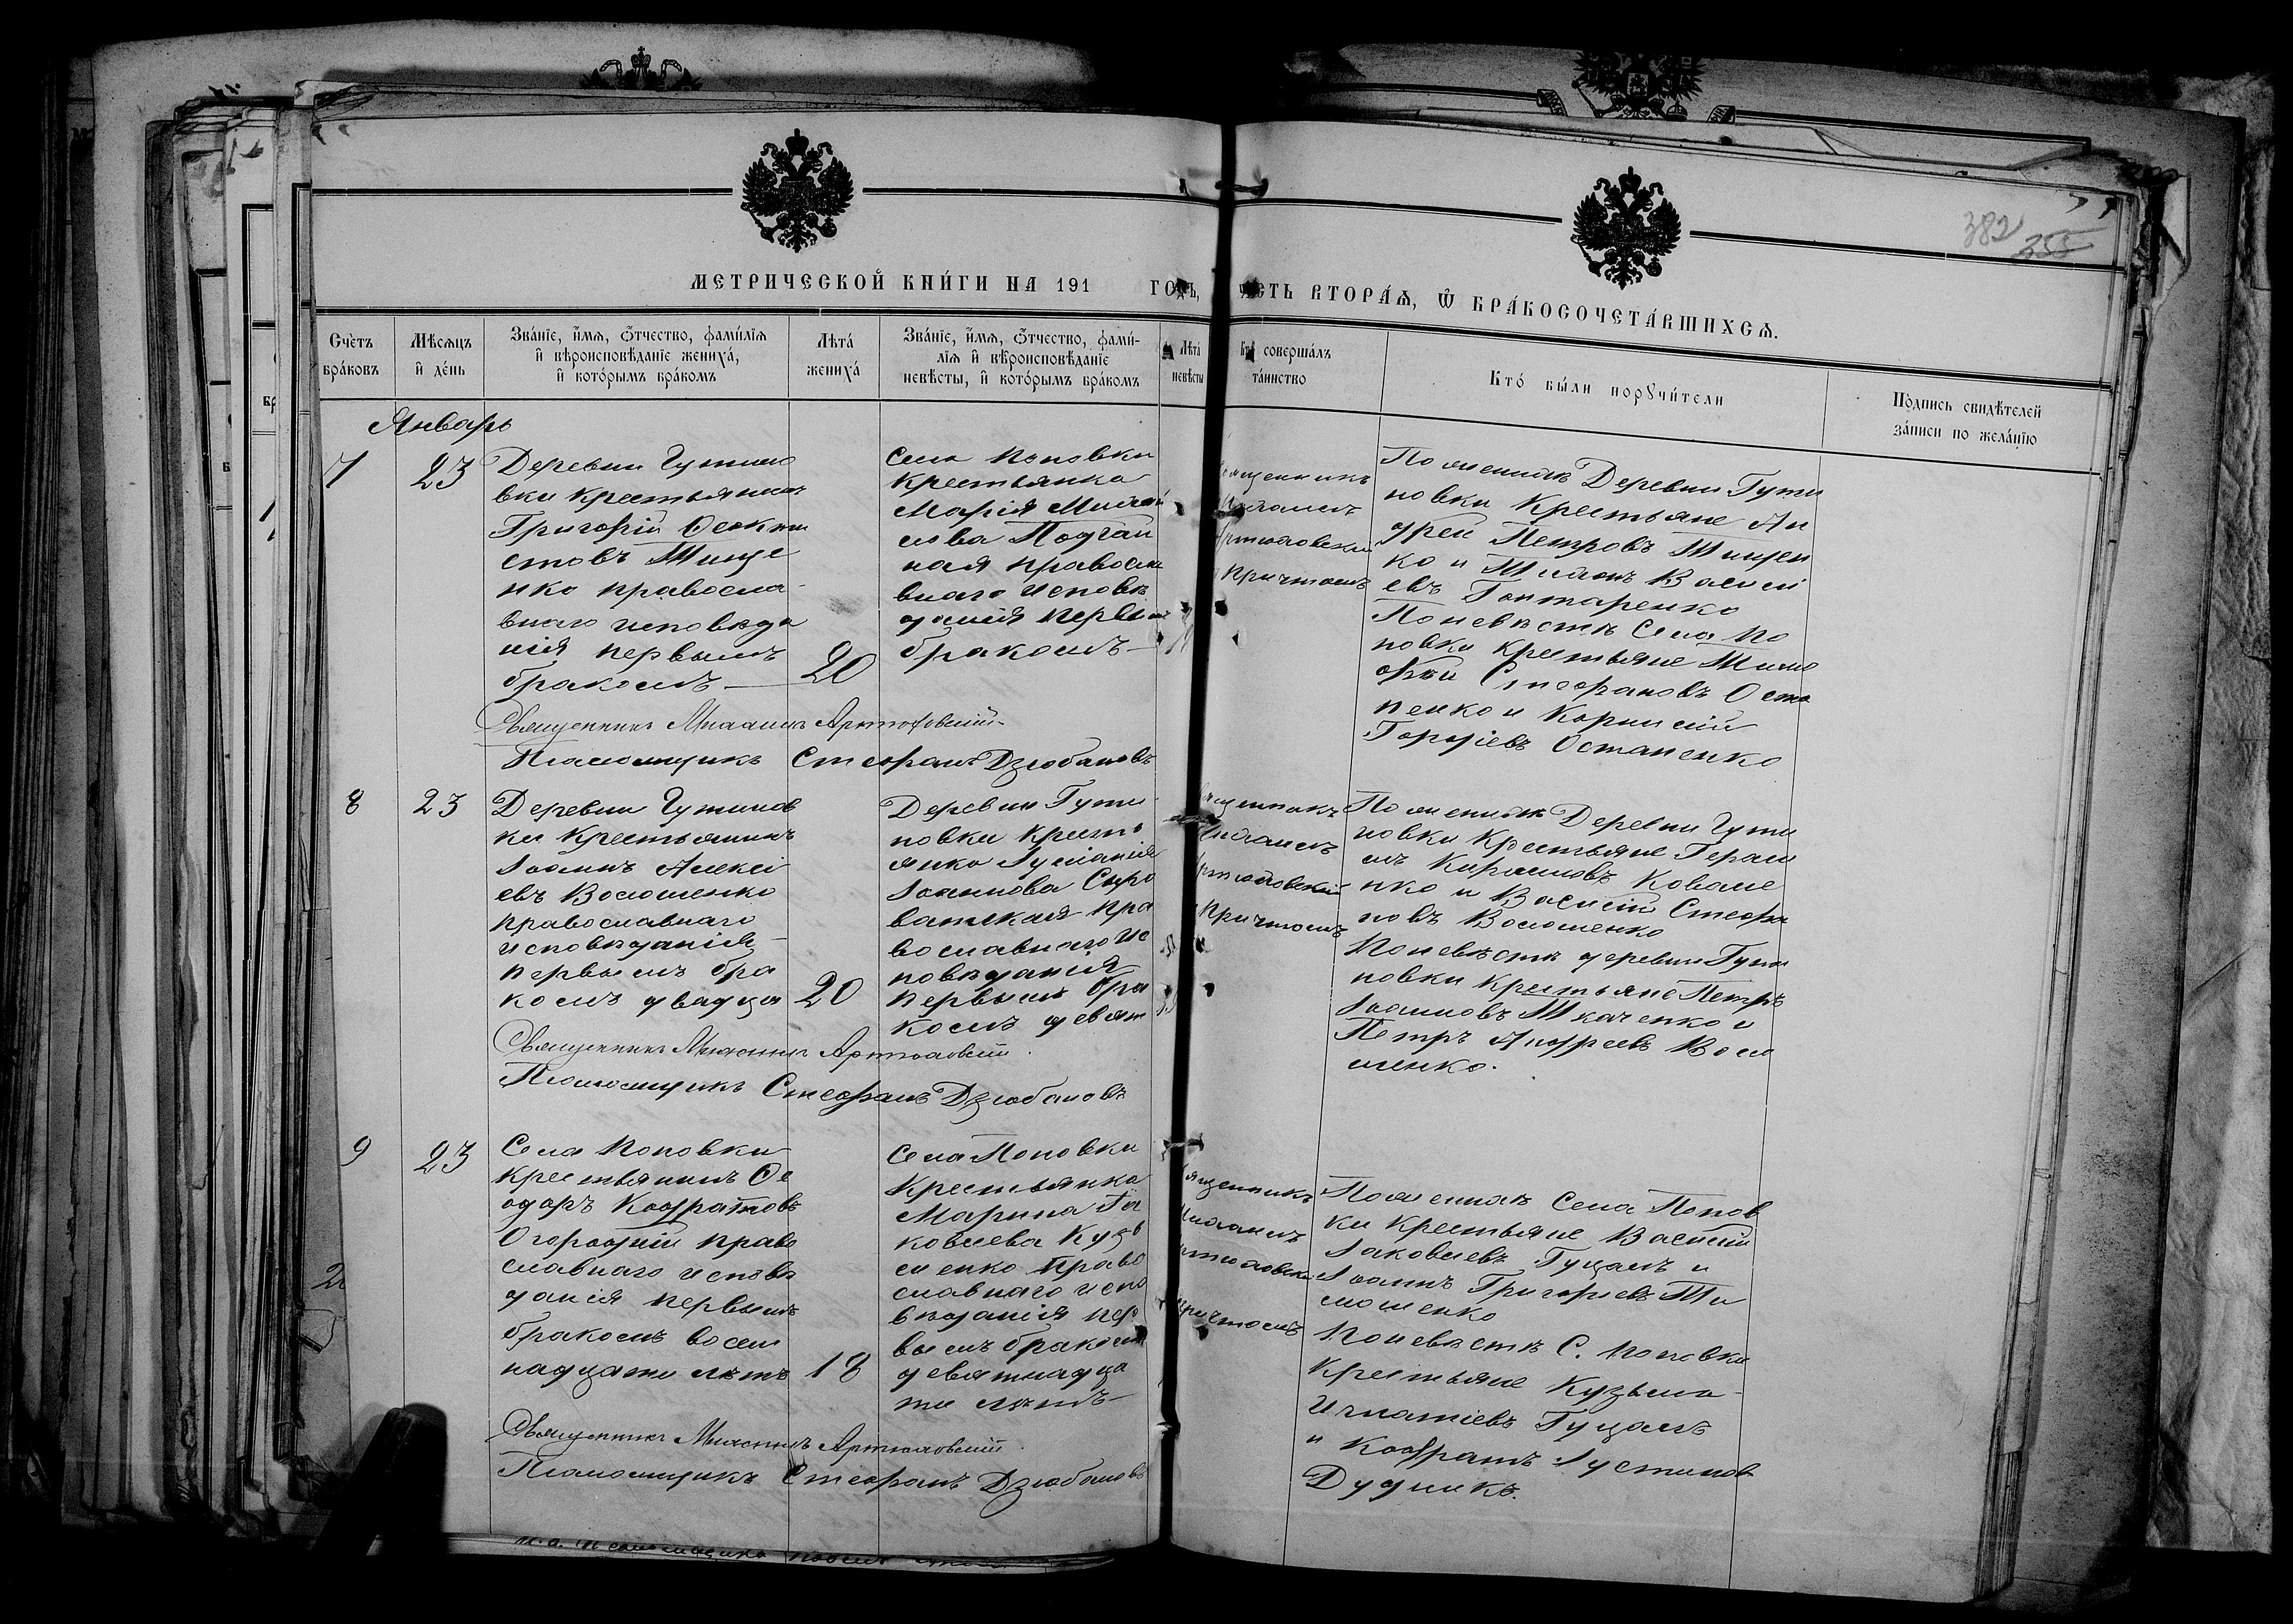 382 355
МЕТРИЧЕСКОЙ КНИГИ НА 191 ГОДЪ, ЧАСТЬ ВТОРАЯ, Ѡ БРАКОСОЧЕТАВШИХСЯ.
Счетъ браковъ
Мѣсяцъ и день
Званіе, имя, отчество, фамилія
и вѣроисповѣданіе жениха,
и которымъ бракомъ
Лѣта
жениха
Званіе, имя, отчество, фами-
лія и вѣроисповѣданіе
невѣсты, и которымъ бракомъ
Лѣта
невѣсты
Кто совершалъ
таинство
Кто были поручители
Подпись свидѣтелей
записи по желанію
Январь
7
23
Деревни Гутино
вки крестьянинъ
Григорій Ѳеокти
стовъ Тище
нко правосла
внаго исповѣда
нія первымъ
бракомъ
20
Села Поповки
крестьянка
Марія
Подгай
ная правосла
внаго исповѣ
данія первы
бракомъ
Священникъ
Артюховскій
причтомъ
По женихѣ Деревни Гути
новки Крестьяне Ан
дрей Петровъ Тищен
ко и Василі
евъ Гонтаренко
По невѣстѣ Села По
повки крестьяне Тимо
ѳей Стефановъ Оста
пенко и Корнилій
Гордіевъ Остапенко
Священникъ Михаилъ Артюховскій
Псаломщикъ Стефанъ Дзюбановъ
8
23
Деревни Гутинов
ки Крестьянинъ
Іоаннъ Алексі
евъ Волошенко
православнаго
исповѣданія
первымъ бра
комъ двадца
20
Деревни Гути
новки кресть
янка
Іоаннова Сыро
ватская пра
вославнаго ис
повѣданія
первымъ бра
комъ девят
Священникъ
Михаилъ
Артюховскій
причтомъ
По женихѣ Деревни Гути
новки Крестьяне Гераси
мъ Кириловъ Ковале
нко и Василій Стефа
новъ Волошенко
По невѣстѣ деревни Гути
новки крестьяне Петръ
Іоанновъ Ткаченко и
Петръ Андреевъ Воло
шенко.
Священникъ Михаилъ Артюховскій
Псаломщикъ Стефанъ Дзюбановъ
9
23
Села Поповки
крестьянинъ Ѳе
одоръ Кодратовъ
Огородній право
славнаго исповѣ
данія первымъ
бракомъ восем
надцати лѣтъ
18
Села Поповки
Крестьянка
Марина Іа
ковлева Кузь
менко право
славнаго испо
вѣданія пер
вымъ бракомъ
девятнадца
ти лѣтъ
Священникъ
Михаилъ
Артюховскій
причтомъ
По женихѣ Села Попов
ки крестьяне Василій
Іаковлевъ Гуцалъ и
Іоаннъ Григорьевъ Ти
мошенко
По невѣстѣ С. Поповки
Крестьяне Кузьма
Игнатіевъ Гуцалъ
и Кодратъ Іустинов
Дудникъ.
Священникъ Михаилъ Артюховскій
Псаломщикъ Стефанъ Дзюбановъ